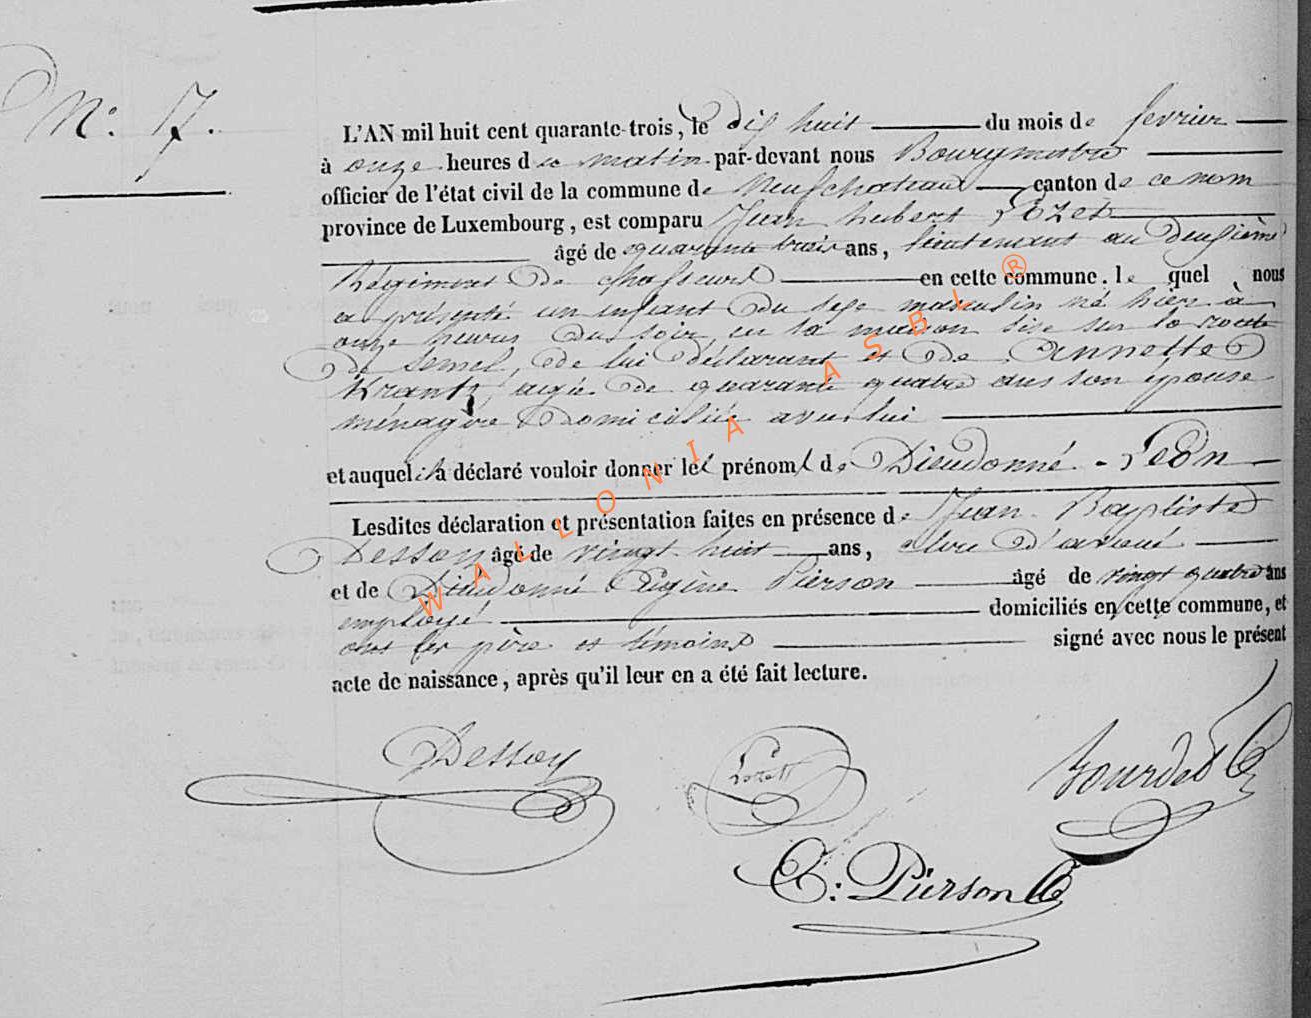 N°: 7.
L'AN mil huit cent quarante-trois, le dix huit du mois de fevrier
à onze heures du matin par-devant nous Bourgmestre
officier de l'état civil de la commune de Neufchateau canton de ce nom
province de Luxembourg, est comparu Jean hubert Lozet
âgé de quarante trois ans, lieutenant au Deuxième
Régiment de chasseurs en cette commune. le quel nous
a présenté un enfant du sexe masculin né hier à
onze heures du soir, en la maison sise sur la route
de Semel, de lui déclarant et de Annette
Krantz, agée de quarante quatre ans son épouse
ménagère Domiciliée avec lui
et auquel il a déclaré vouloir donner les prénoms de Dieudonné - Léon
Lesdites déclaration et présentation faites en présence de Jean Baptiste
Dessoy âgé de vingt huit ans, clerc d'avoué
et de Dieudonné Eugène Pierson âgé de vingt quatre ans
employé domiciliés en cette commune, et
ont les père et témoins signé avec nous le présent
acte de naissance, après qu'il leur en a été fait lecture.
Dessoy Lozet
E: Pierson
WALLONIA ASBL ®